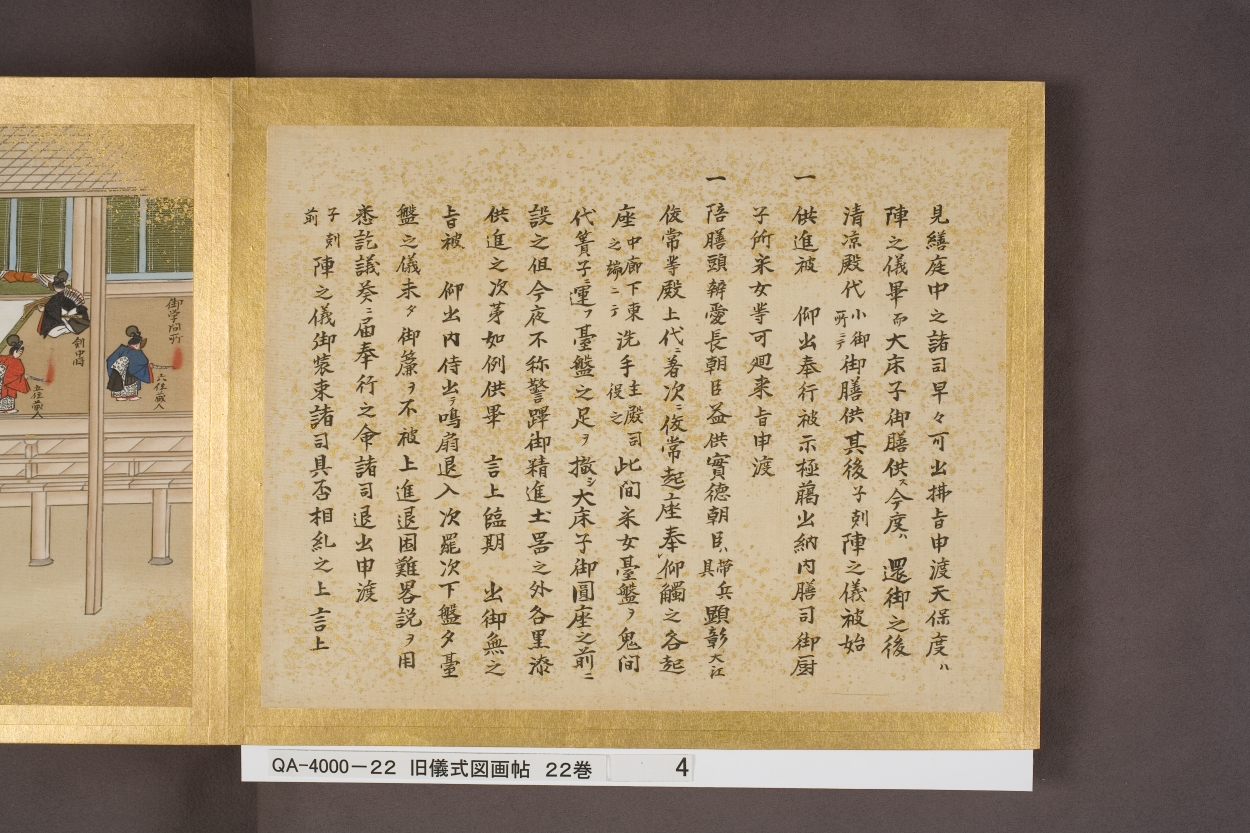 見繕庭中之諸司早々可出拂旨申渡天保度ハ
陣之儀畢而大床子御膳供ス今度ハ 還御之後
清凉殿代小御所ニテ御膳供其後子刻陣之儀被始
一 供進被 仰出奉行被示極﨟出納内膳司御厨
子所采女等可廻来旨申渡
一 陪膳頭辨愛長朝臣益供實德朝臣帶兵具顕彰大江
俊常等殿上代ニ著次ニ俊常起座奉仰觸之各起
座中廊下東之端ニテ洗手主殿司役之此間采女臺盤ヲ鬼間
代簀子ニ運フ臺盤之足ヲ撤シ大床子御圓座之前ニ
設之但今夜不称警蹕御精進土器之外各黒漆
供進之次第如例供畢 言上臨期 出御無之
旨被 仰出内侍出ラ鳴扇退入次罷次下盤夕臺
盤之儀未夕御簾ヲ不被上進退困難畧説ヲ用
悉訖議奏ニ届奉行之命諸司退出申渡
子刻前陣之儀御装束諸司具否相糺之上言上
御学問所
剣中将
六位蔵人
五位蔵人
QA-4000-22 旧儀式図画帖 22巻 4